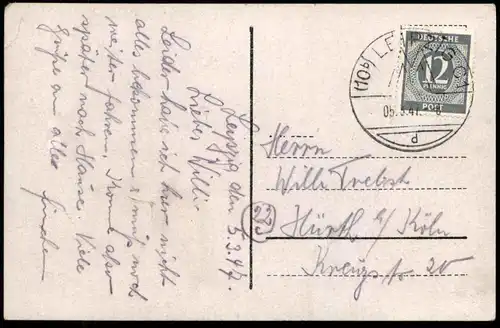 Leipzig den 5.3.47.
Lieber Willi.
Leider habe ich hier nicht
alles bekommen & muß noch
weiter fahren, komme aber
später nach Hause. Viele
Grüße an alle
(10b) LEIPZIG
05.3.47.
d
DEUTSCHE
12
PFENNIG
POST
Herrn
Willi
Hürth b/ Köln
Kreuzstr. 20